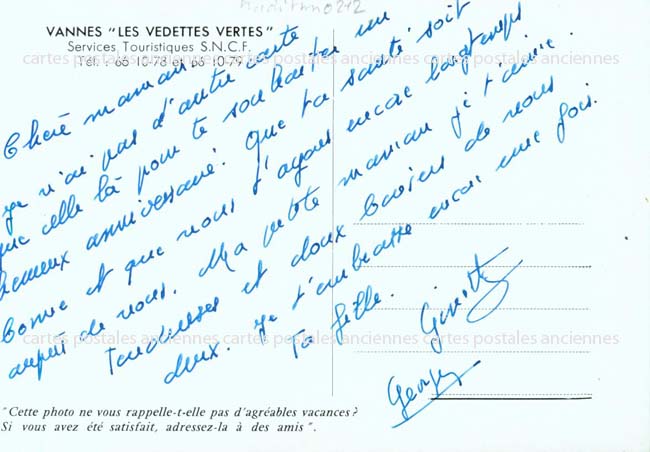 VANNES "LES VEDETTES VERTES"
Services Touristiques S.N.C.F.
Tél. : 66 10-78 et 66 10-79
cartes postales anciennes cartes postales anciennes cartes postales anciennes
Chère maman
je n'ai pas d'autre carte
que celle là pour te souhaiter un
heureux anniversaire. Que ta santé soit
bonne et que nous t'ayons encore longtemps
auprès de nous. Ma petite maman je t'aime.
Tendresses et doux baisers de nous
deux. Je t'embrasse encore une fois.
Ta fille. Ginette
Georges
cartes postales anciennes cartes postales anciennes cartes postales anciennes
"Cette photo ne vous rappelle-t-elle pas d'agréables vacances ?
Si vous avez été satisfait, adressez-la à des amis".